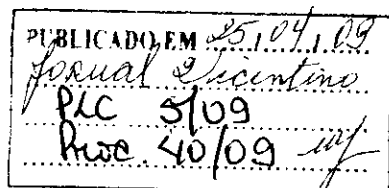 PUBLICADO EM 25/04/09
Jornal Vicentino
PLC 5/09
Proc. 40/09